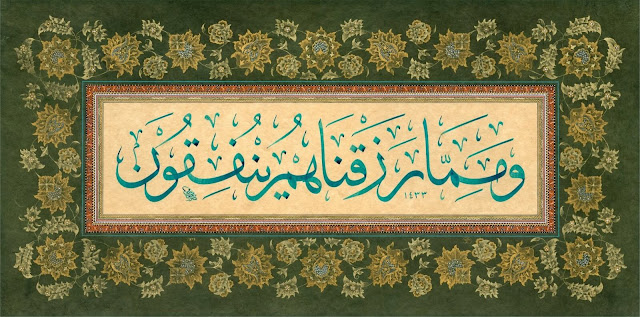 وَمِمَّا رَزَقْنَاهُمْ يُنْفِقُونَ
١٤٣٣